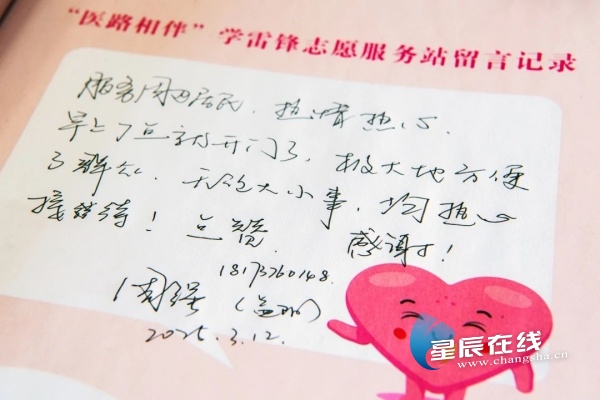 “医路相伴”学雷锋志愿服务站留言记录
服务周边居民、热情热心、
早上7点就开门了，极大地方便
了群众、无论大小事，均热心
接待！点赞 感谢！
18173260148
周
2025.3.12.
星辰在线
www.changsha.cn